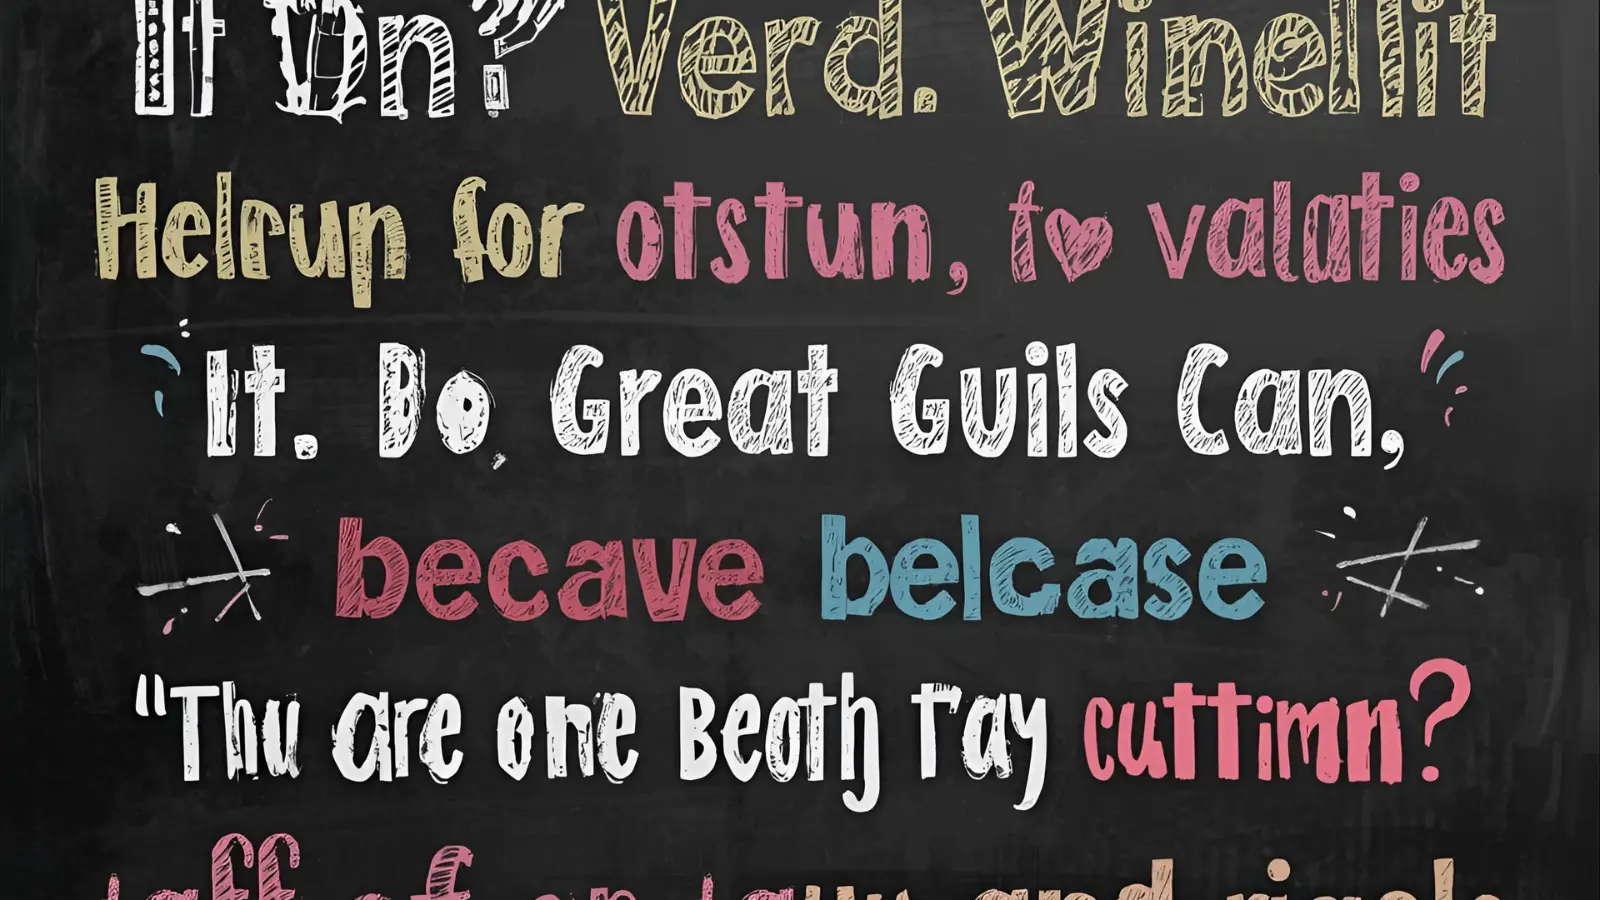 It On? Verd. Winellit
Helrup for otstun, to valaties
It. Bo, Great Guils Can,
becave belcase
"Thu are one Beoth ray cuttimn?